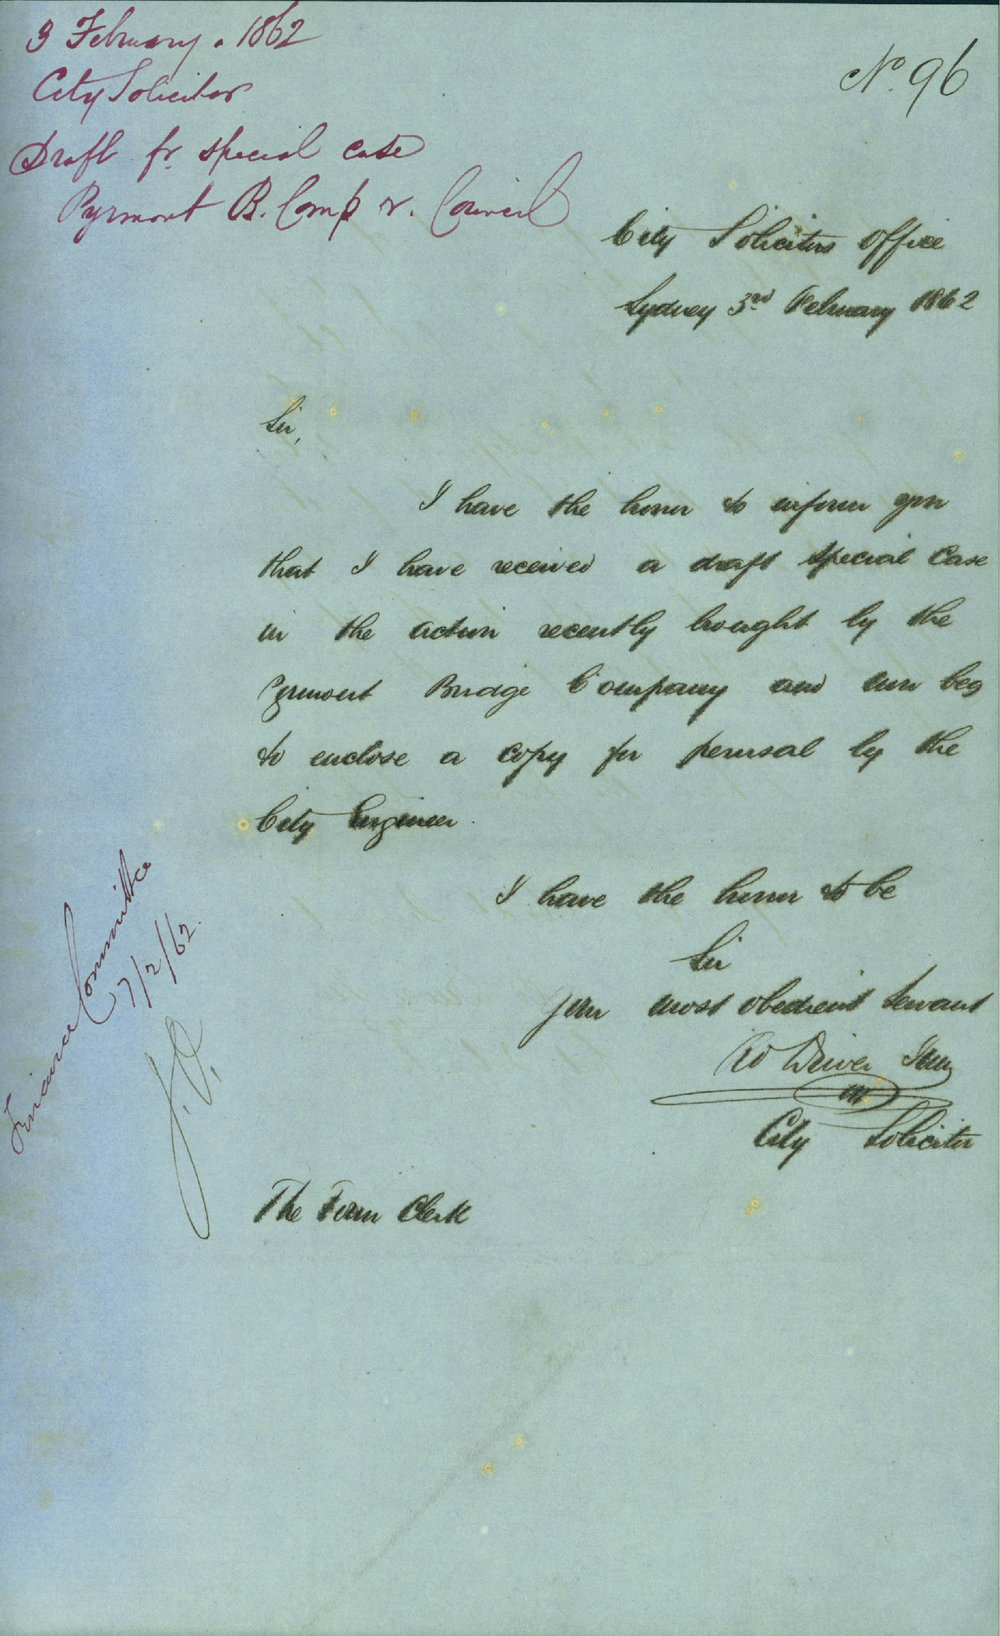 3 February. 1862
City Solicitor
Draft for special case
Pyrmont B. Comp v. Council
No. 96
City Solicitors Office
Sydney 3rd February 1862
Sir,
I have the honor to inform you
that I have received a draft Special Case
in the action recently brought by the
Pyrmont Bridge Company and now beg
to enclose a copy for perusal by the
City Engineer.
I have the honor to be
Sir
Your most obedient Servant
Driver Junr
City Solicitor
The Town Clerk
Finance Committee
7/2/62.